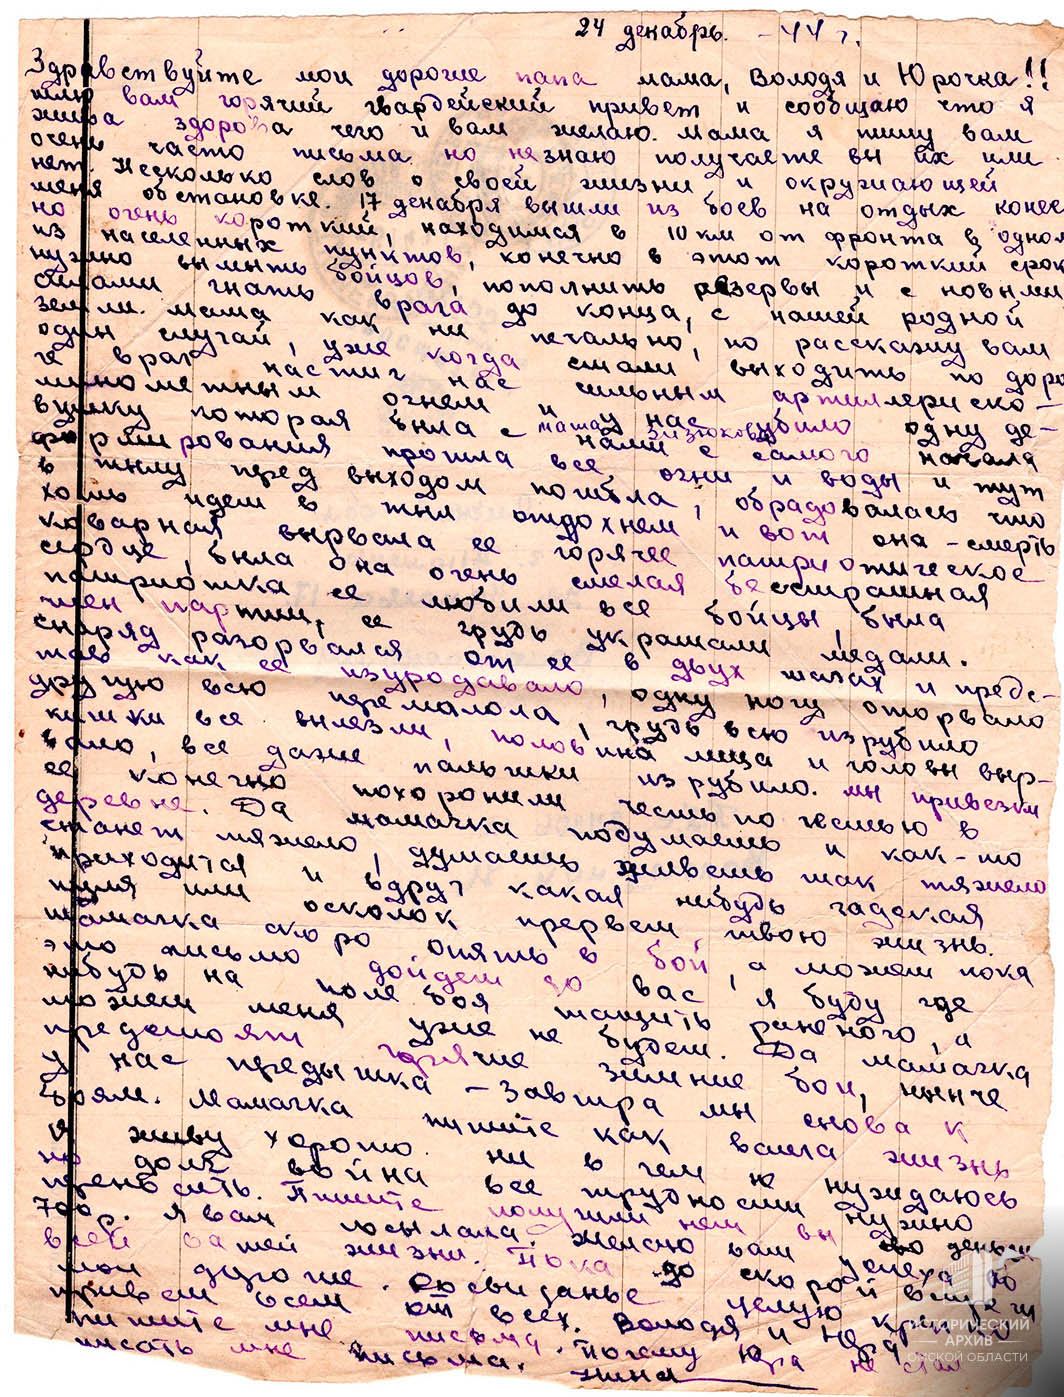 24 декабрь. - 44 г.
Здравствуйте мои дорогие папа мама, Володя и Юрочка!!
шлю вам горячий гвардейский привет и сообщаю что я
жива здорова чего и вам желаю. Мама я пишу вам
очень часто письма но незнаю получаете вы их или
нет. Несколько слов о своей жизни и окружающей
меня обстановке. 17 декабря вышли из боев на отдых конеч
но очень короткий, находимся в 10 км от фронта в одном
из населенных пунктов, конечно в этот короткий срок
нужно вымыть бойцов, пополнить резервы и с новыми
силами гнать врага до конца, с нашей родной
земли. Мама как ни печально, но расскажу вам
один случай, уже когда стали выходить по доро
ге враг настиг нас сильным артиллерийско-
минометным огнем и у нас убило одну де-
Маша Зизюкова
вушку которая была с нами с самого начала
формирования прошла все огни и воды и тут
в тылу перед выходом погибла, обрадовалась что
хоть идем в тыл отдохнем и вот она - смерть
коварная вырвала ее горячее патриотическое
сердце, была она очень смелая бесстрашная
патриотка ее любили все бойцы, была
член партии, ее грудь украшали медали.
снаряд разорвался от ее в двух шагах и предс-
тавь как ее изуродовало, одну ногу оторвало
другую всю перемолола, грудь всю изрубило
кишки все вылезли, половина лица и головы выр-
вало, все даже пальчики изрубило. мы привезли
ее конечно похоронили честь по честью в
деревне. Да мамочка подумаешь и как-то
станет тяжело, думаешь живешь так тяжело
приходится и вдруг какая нибудь гадская
пуля или осколок прервет твою жизнь.
Мамочка скоро опять в бой, а может пока
это письмо дойдет до вас я буду где
нибудь на поле боя тащить раненого, а
может меня уже не будет. Да мамочка
предстоят горячие зимние бои, нынче
у нас передышка - завтра мы снова к
боям. Мамочка пишите как ваша жизнь
я живу хорошо ни в чем не нуждаюсь
но доля война все трудности нужно
переносить. Пишите получили нет вы деньги
700 р. я вам посылала желаю вам успеха во
всей вашей жизни. Пока до скорой встречи
мои дорогие. Досвиданье целую крепко
привет всем от всех. Володя и Юра
пишите мне письма. почему Юра не стал
писать мне письма.
Жина
ИСТОРИЧЕСКИЙ
АРХИВ
ОМСКОЙ ОБЛАСТИ